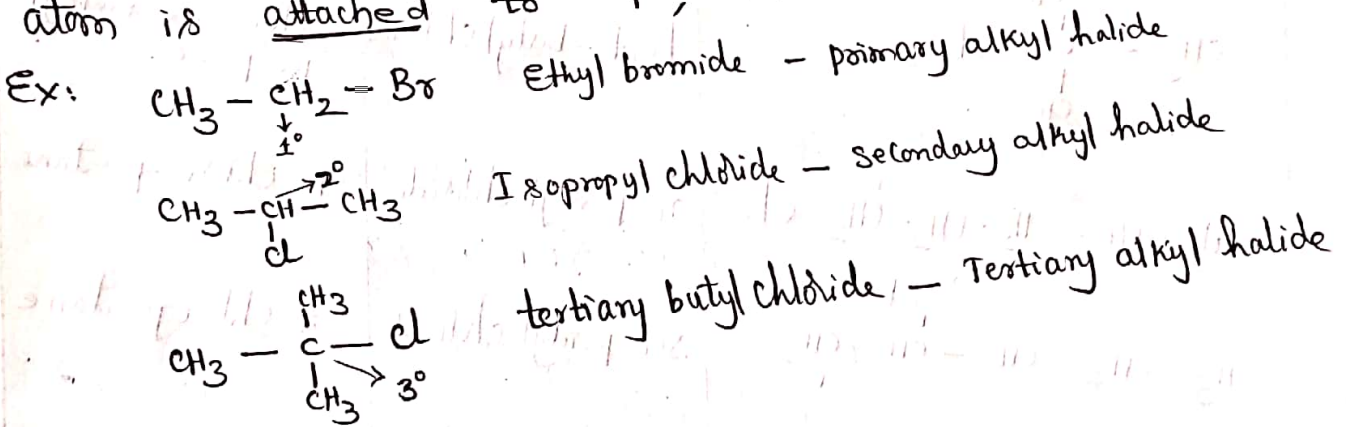 atom is attached to
Ex: CH₃ – CH₂ – Br Ethyl bromide – primary alkyl halide
↓
1°
→2°
CH₃ – CH – CH₃ Isopropyl chloride – secondary alkyl halide
Cl
CH₃
CH₃ – C – Cl tertiary butyl chloride – Tertiary alkyl halide
→ 3°
CH₃